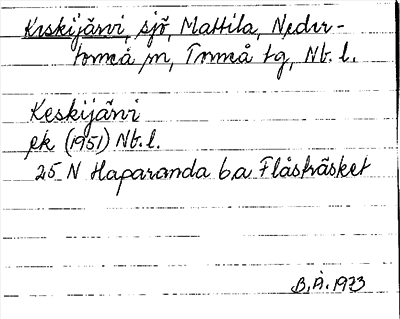 Keskijärvi, sjö, Mattila, Neder-
torneå sn, Torneå tg, Nb. l.
Keskijärvi
ek (1951) Nb. l.
25 N Haparanda b.a Flåsträsket
B.Å. 1973